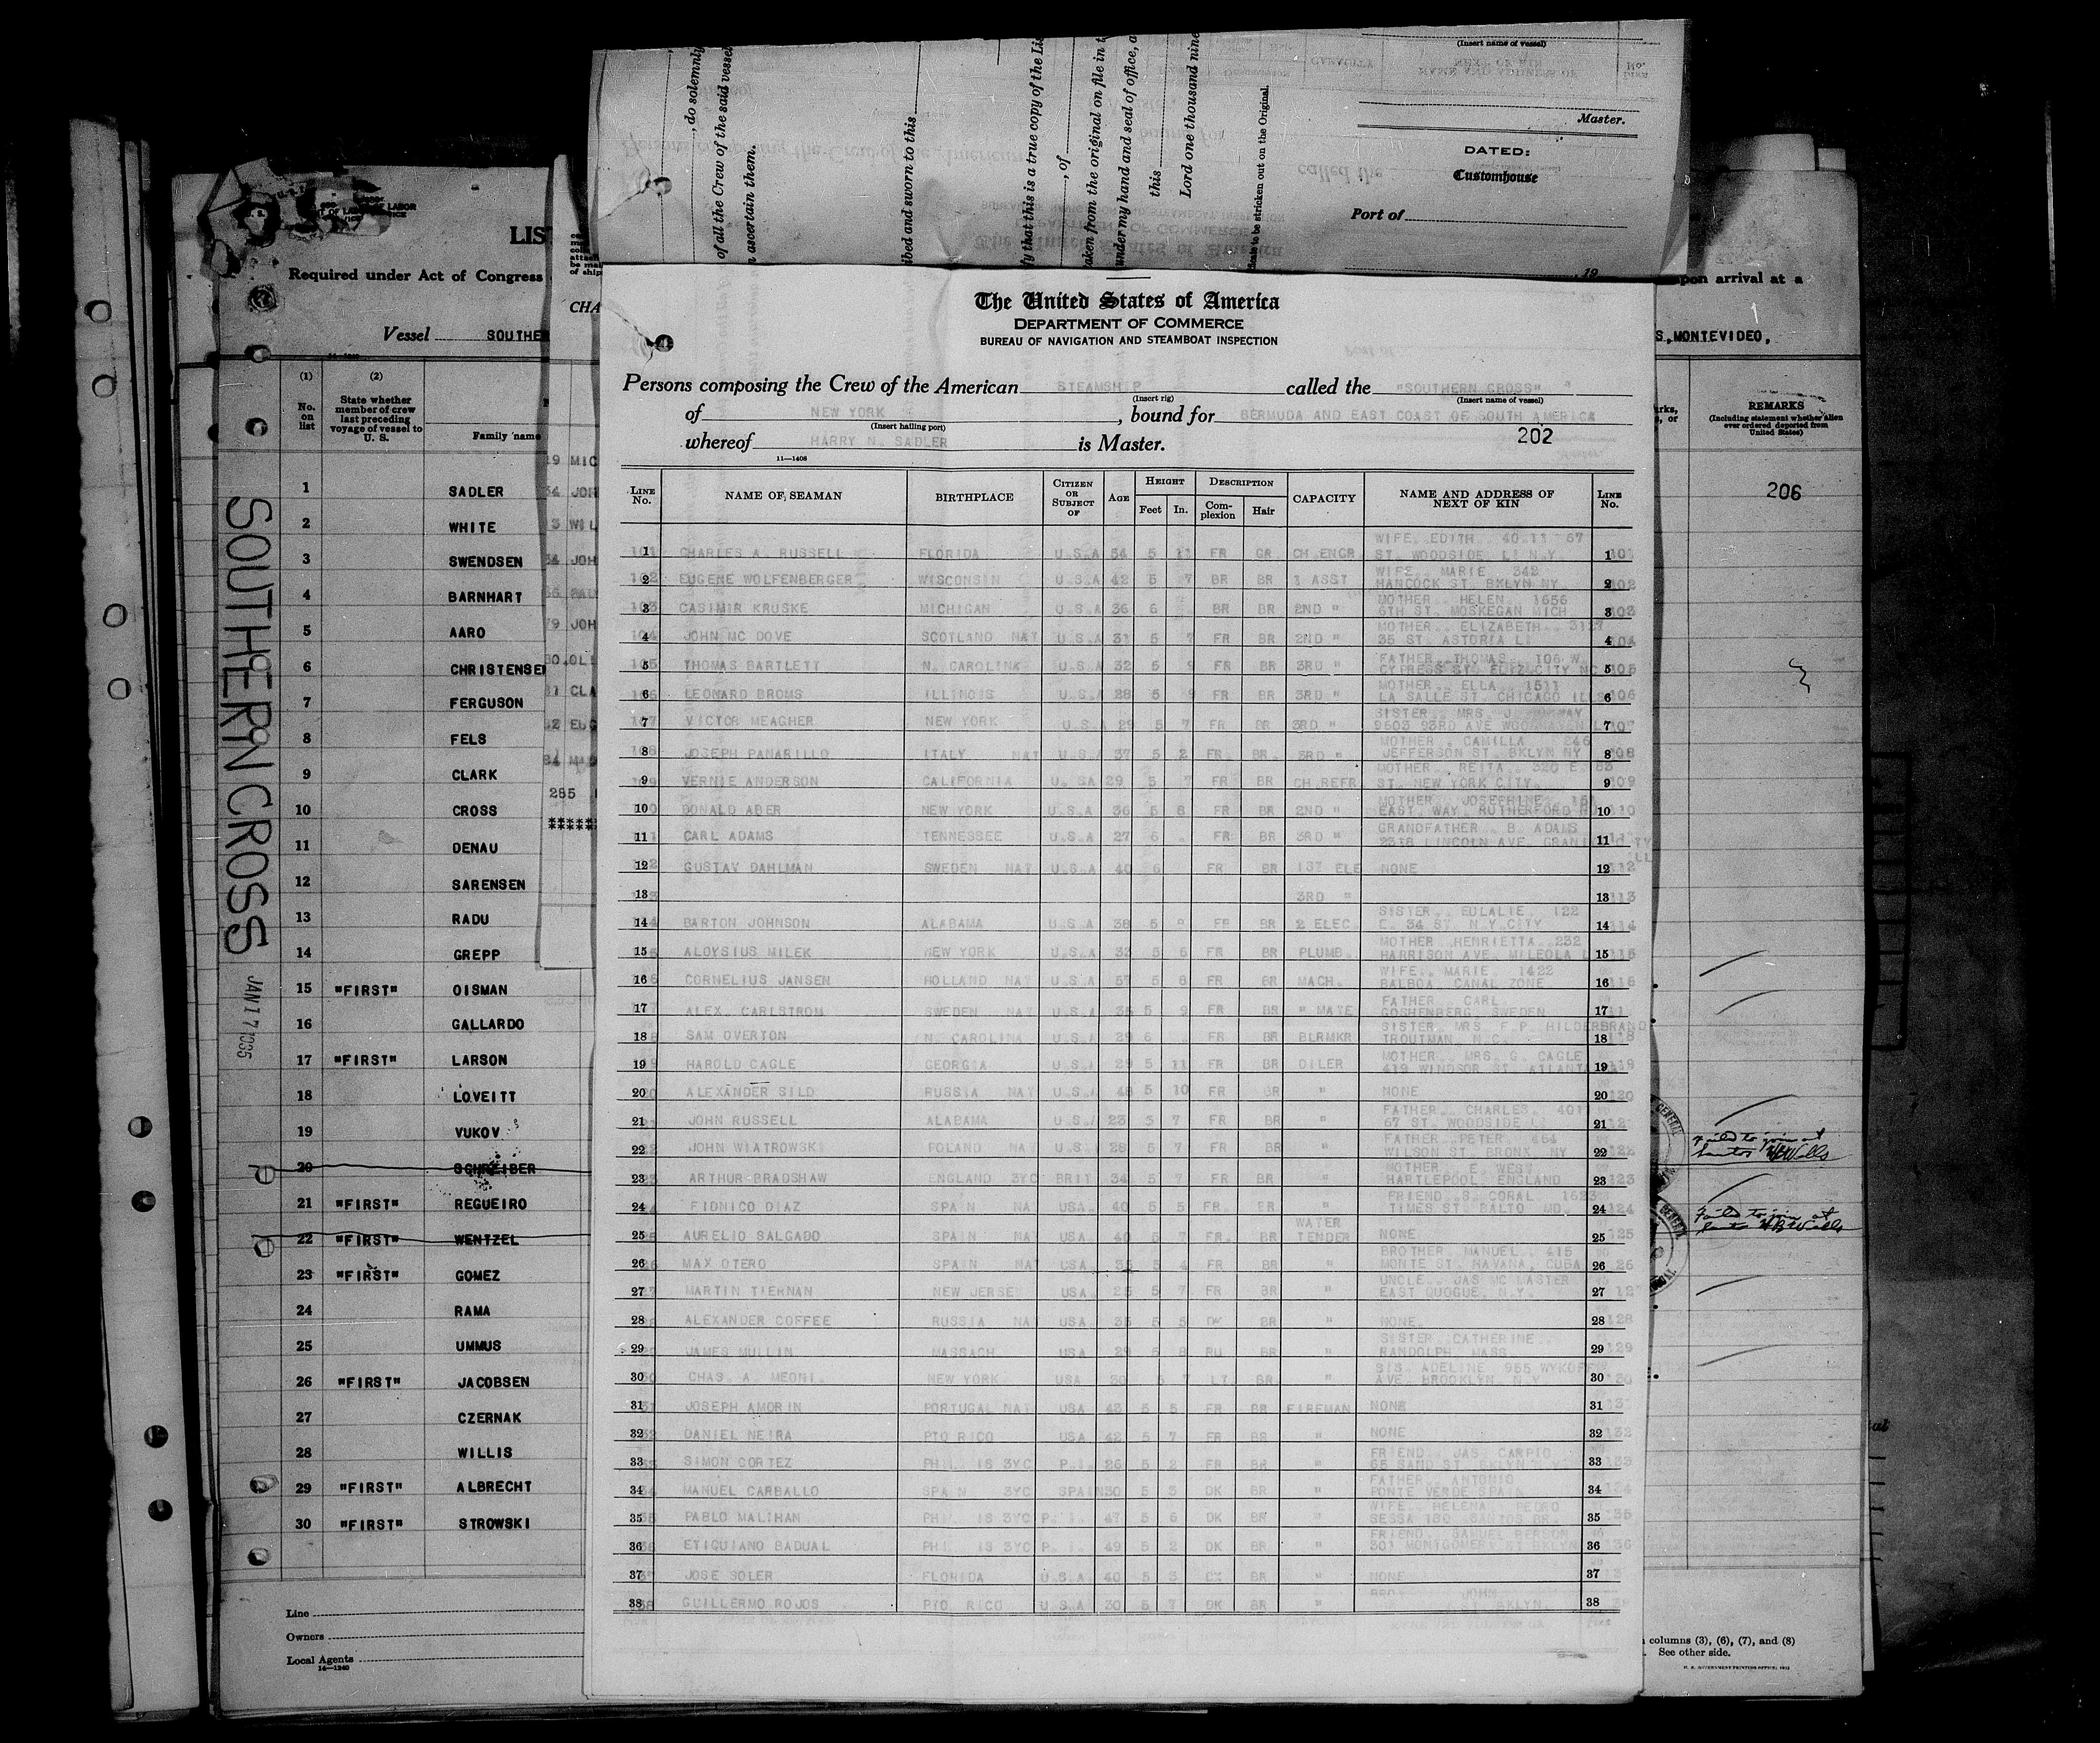 , do solemnly
of all the Crew of the said vessel
ascertain them.
bed and sworn to this
fy that this is a true copy of the Lis
, of
taken from the original on file in t
under my hand and seal of office, a
this
Lord one thousand nine
to be stricken out on the Original.
(Insert name of vessel)
Master.
DATED:
Customhouse
Port of
, 19
LIS
Required under Act of Congress
CHA
Vessel SOUTHE
upon arrival at a
S,MONTEVIDEO,
(1) No. on list
(2) State whether member of crew last preceding voyage of vessel to U. S.
Family name
REMARKS
(Including statement whether alien ever ordered deported from United States)
206
SOUTHERN CROSS
1 SADLER
2 WHITE
3 SWENDSEN
4 BARNHART
5 AARO
6 CHRISTENSE
7 FERGUSON
8 FELS
9 CLARK
10 CROSS
11 DENAU
12 SARENSEN
13 RADU
14 GREPP
15 "FIRST" OISMAN
16 GALLARDO
17 "FIRST" LARSON
18 LOVEITT
19 VUKOV
20 SCHREIBER
21 "FIRST" REGUEIRO
22 "FIRST" WENTZEL
23 "FIRST" GOMEZ
24 RAMA
25 UMMUS
26 "FIRST" JACOBSEN
27 CZERNAK
28 WILLIS
29 "FIRST" ALBRECHT
30 "FIRST" STROWSKI
Line
Owners
Local Agents
14—1240
Failed to join at
Failed to join at
columns (3), (6), (7), and (8)
See other side.
U. S. GOVERNMENT PRINTING OFFICE: 1932
The United States of America
DEPARTMENT OF COMMERCE
BUREAU OF NAVIGATION AND STEAMBOAT INSPECTION
Persons composing the Crew of the American STEAMSHIP called the "SOUTHERN CROSS"
(Insert rig) (Insert name of vessel)
of NEW YORK, bound for BERMUDA AND EAST COAST OF SOUTH AMERICA
(Insert hailing port)
whereof HARRY N. SADLER is Master. 202
11—1408
LINE No. NAME OF SEAMAN BIRTHPLACE CITIZEN OR SUBJECT OF AGE HEIGHT Feet In. DESCRIPTION Complexion Hair CAPACITY NAME AND ADDRESS OF NEXT OF KIN LINE No.
1 CHARLES A. RUSSELL FLORIDA U.S.A 54 5 11 FR GR CH ENGR WIFE. EDITH 40.11 67 ST. WOODSIDE LI N.Y. 1
2 EUGENE WOLFENBERGER WISCONSIN U.S.A 42 5 7 BR BR 1 ASST WIFE. MARIE 342 HANCOCK ST. BKLYN NY 2
3 CASIMIR KRUSKE MICHIGAN U.S.A 36 6 BR BR 2ND " MOTHER. HELEN. 1656 6TH ST. MOSKEGAN MICH 3
4 JOHN MC DOVE SCOTLAND NAT U.S.A 31 5 7 FR BR 2ND " MOTHER. ELIZABETH. 3127 35 ST. ASTORIA LI 4
5 THOMAS BARTLETT N. CAROLINA U.S.A 32 5 9 FR BR 3RD " FATHER. THOMAS. 106 W. CYPRESS ST. ELIZ.CITY NC 5
6 LEONARD BROMS ILLINOIS U.S.A 28 5 9 FR BR 3RD " MOTHER. ELLA. 1511 LA SALLE ST. CHICAGO ILL 6
7 VICTOR MEAGHER NEW YORK U.S.A 29 5 7 FR BR 3RD " SISTER. MRS. J 9503 93RD AVE 7
8 JOSEPH PANARILLO ITALY NAT U.S.A 37 5 2 FR. BR. 3RD " MOTHER. CAMILLA 246 JEFFERSON ST. BKLYN NY 8
9 VERNIE ANDERSON CALIFORNIA U. SA 29 5 7 FR BR CH.REFR MOTHER. REITA. 320 E. 83 ST. NEW YORK CITY. 9
10 DONALD ABER NEW YORK U.S.A 36 5 8 FR BR 2ND " MOTHER. JOSEPHINE. 151 EAST. WAY. RUTHERFORD N 10
11 CARL ADAMS TENNESSEE U.S.A 27 6 FR BR 3RD " GRANDFATHER. B. ADAMS 2318 LINCOLN AVE. GRANI 11
12 GUSTAV DAHLMAN SWEDEN NAT U.S.A 40 6 FR BR 1ST ELE NONE 12
13 3RD " 13
14 BARTON JOHNSON ALABAMA U.S.A 38 5 9 FR BR 2 ELEC SISTER. EULALIE. 122 E. 34 ST. N.Y.CITY 14
15 ALOYSIUS MILEK NEW YORK U.S.A 33 5 6 FR BR PLUMB. MOTHER.HENRIETTA. 232 HARRISON AVE. MILEOLA 15
16 CORNELIUS JANSEN HOLLAND NAT U.S.A 57 5 8 FR BR MACH. WIFE. MARIE. 1422 BALBOA. CANAL ZONE 16
17 ALEX. CARLSTROM SWEDEN NAT U.S.A 35 5 9 FR BR " MATE FATHER. CARL. GOSHENBERG, SWEDEN 17
18 SAM OVERTON N. CAROLINA U.S.A 29 6 FR BR BLRMKR SISTER. MRS. F.P. HILDERBRAND TROUTMAN. N.C. 18
19 HAROLD CAGLE GEORGIA U.S.A 29 5 11 FR BR OILER MOTHER. MRS. G. CAGLE 419 WINDSOR ST. ATLANT 19
20 ALEXANDER SILD RUSSIA NAT U.S.A 48 5 10 FR BR " NONE 20
21 JOHN RUSSELL ALABAMA U.S.A 23 5 7 FR BR " FATHER. CHARLES. 4011 67 ST. WOODSIDE L 21
22 JOHN WIATROWSK POLAND NAT U.S.A 28 5 7 FR BR " FATHER.PETER. 464 WILSON ST. BRONX. NY 22
23 ARTHUR BRADSHAW ENGLAND 3YC BRIT 34 5 FR BR " MOTHER. E. WEST HARTLEPOOL, ENGLAND 23
24 FIDNICO DIAZ SPAIN NA USA. 40 5 5 FR. BR " FRIEND. S. CORAL. 1623 TIMES ST. BALTO. MD. 24
25 AURELIO SALGADO SPAIN NA USA 40 5 7 FR. BR WATER TENDER NONE 25
26 MAX OTERO SPAIN NA USA 5 4 FR BR " BROTHER. MANUEL. 415 MONTE ST. HAVANA, CUBA 26
27 MARTIN TIERNAN NEW JERSEY USA 25 5 7 FR BR " UNCLE. JAS MC MASTER EAST QUOGUE. N.Y. 27
28 ALEXANDER COFFEE RUSSIA NA USA 35 5 5 DK BR " NONE. 28
29 JAMES MULLIN MASSACH USA 29 5 8 RU BR " SISTER. CATHERINE. RANDOLPH. MASS. 29
30 CHAS. A. MEONI. NEW YORK USA 30 5 7 LT. BR. " SIS. ADELINE 955 WYKOFF AVE. BROOKLYN. N.Y 30
31 JOSEPH AMORIN PORTUGAL NAT USA 43 5 5 FR BR FIREMAN NONE 31
32 DANIEL NEIRA PTO RICO USA 42 5 7 FR BR " NONE 32
33 SIMON CORTEZ PHI. IS 3YC P.I. 26 5 2 FR BR " FRIEND. JAS. CARPIO 65 SAND ST BKLYN 33
34 MANUEL CARBALLO SPAIN 3YC SPAIN 30 5 3 DK BR " FATHER. ANTONIO PONTE VERDE SPAIN 34
35 PABLO MALIHAN PHI. IS 3YC P. I. 47 5 6 DK BR " WIFE. HELENA. PEDRO SESSA 130 SANTOS BR. 35
36 ETIQUIANO BADUAL PHI. IS 3YC P. I. 49 5 2 DK BR " FRIEND. SAMUEL BERSON 301 MONTGOMERY ST BKLYN 36
37 JOSE SOLER FLORIDA U.S.A. 40 5 3 DK BR " NONE 37
38 GUILLERMO ROJOS PTO RICO U.S.A 30 5 7 DK BR " JOHN BKLYN. 38